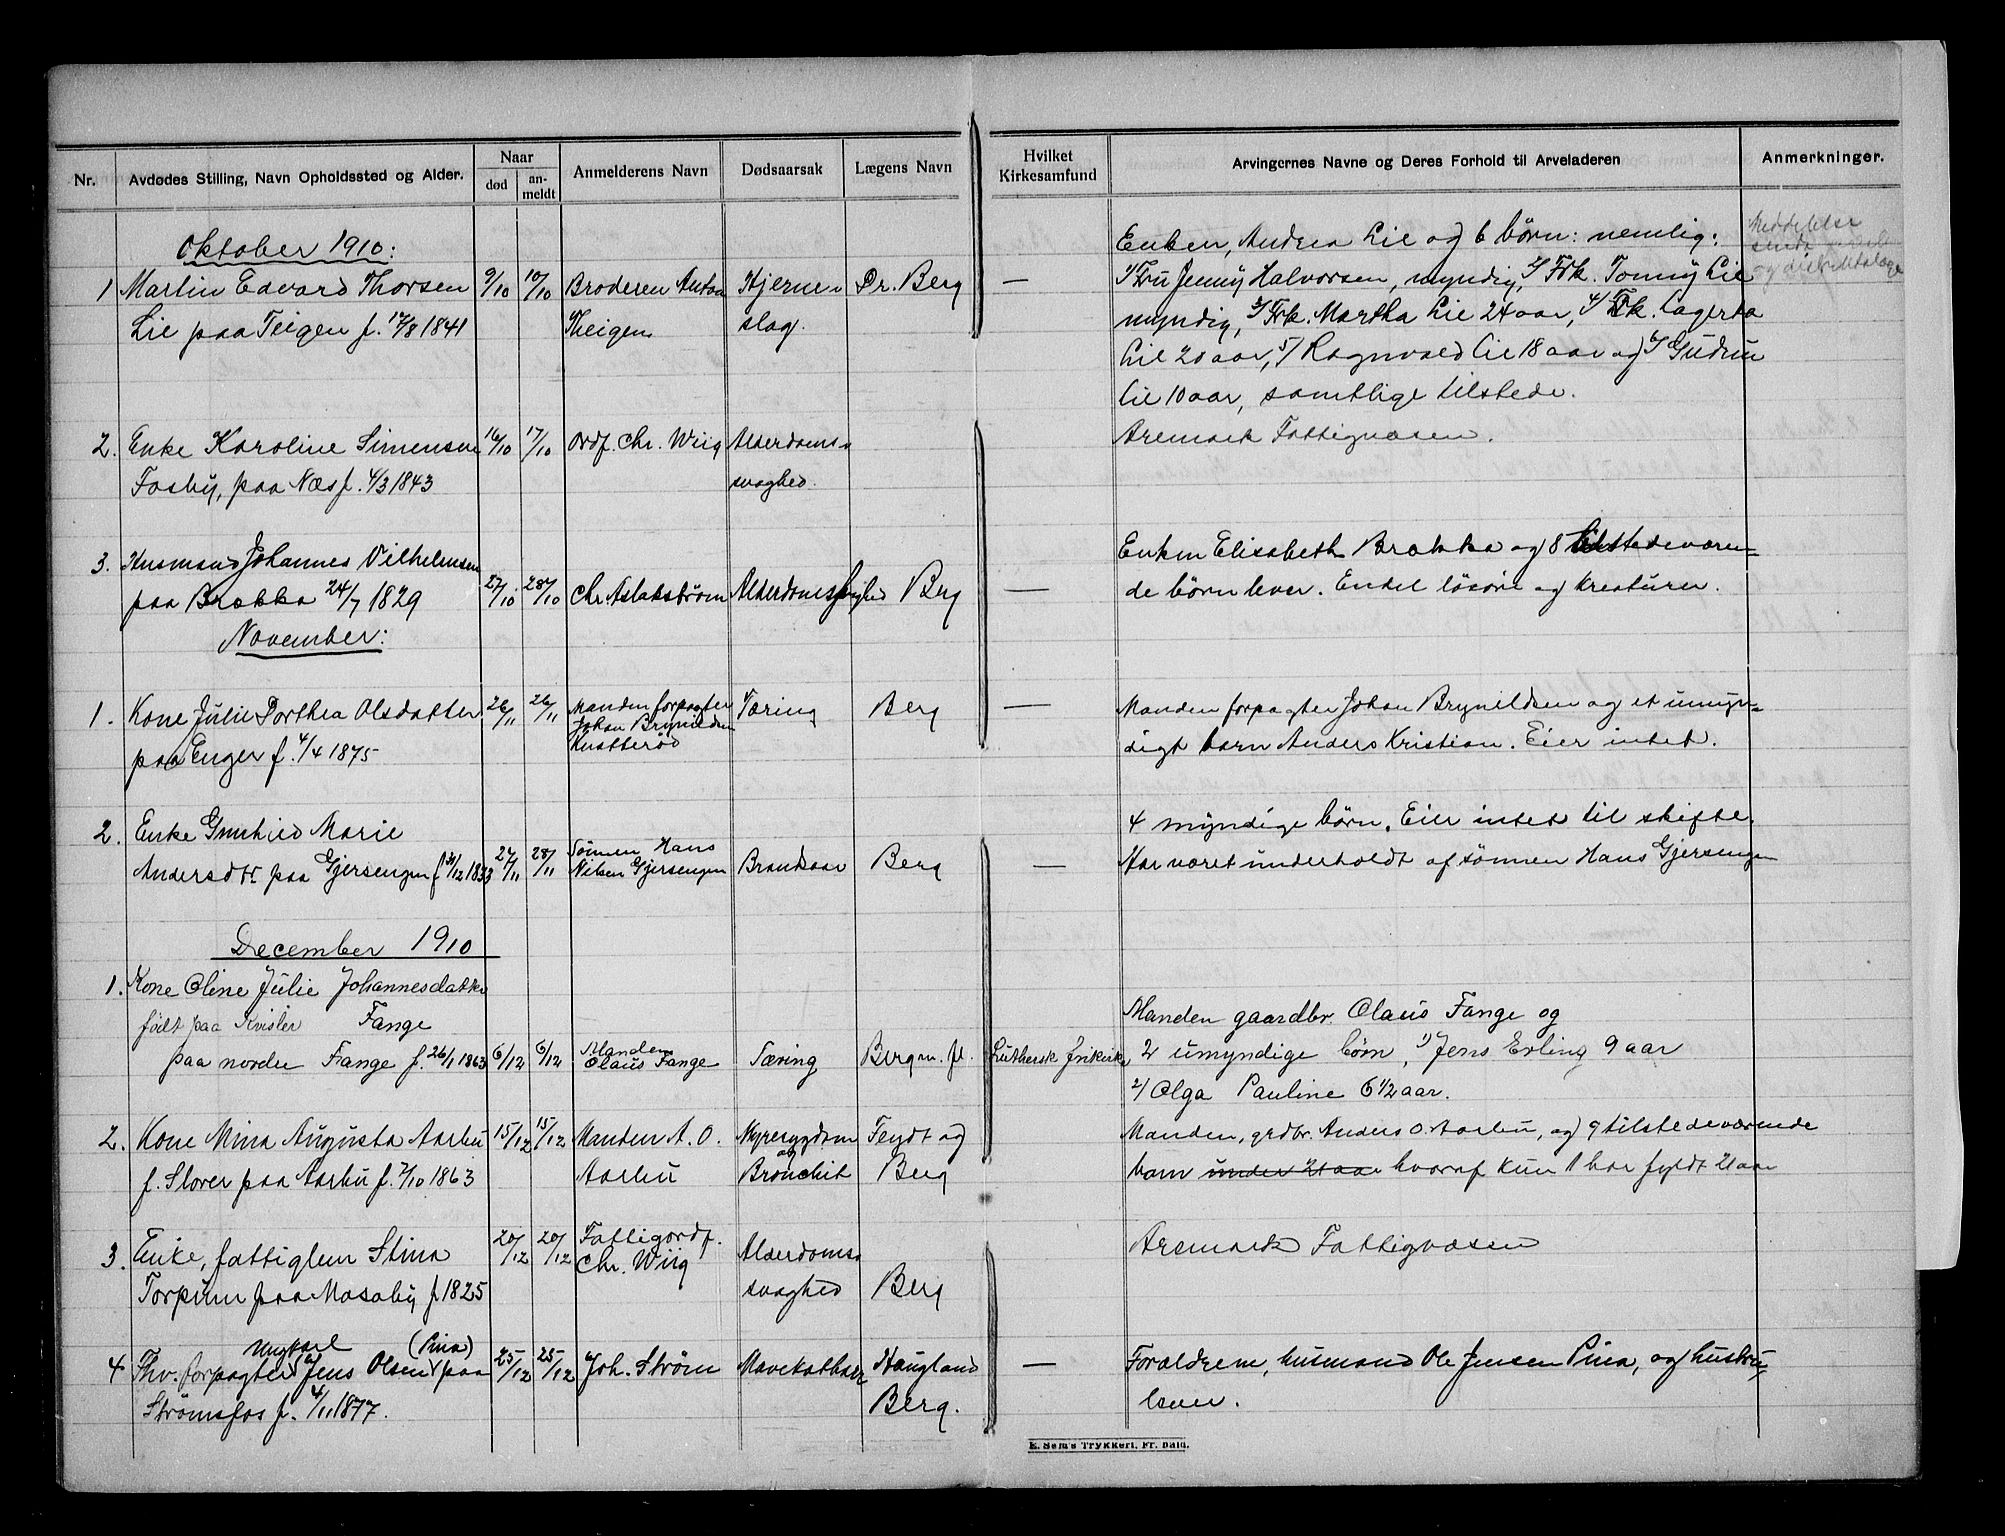 Nr.
Avdødes Stilling, Navn Opholdssted og Alder.
Naar
død
an-
meldt
Anmelderens Navn
Dødsaarsak
Lægens Navn
Hvilket
Kirkesamfund
Arvingernes Navne og Deres Forhold til Arveladeren
Anmerkninger.
Oktober 1910:
1 Martin Edvard Thorsen
Lie paa Teigen f. 17/8 1841
9/10
10/10
Broderen Anton
Theigen
Hjerne-
slag.
Dr. Berg
—
Enken, Andrea Lie og 6 børn: nemlig:
1/ Fru Jenny Halvorsen, myndig, 2/ Frk. Tonny Lie
myndig, 3/ Frk. Martha Lie 24 aar, 4/ Frk. Lagerta
Lie 20 aar, 5/ Ragnvald Lie 18 aar og 6/ Gudrun
Lie 10 aar, samtlige tilstede.
Meddelelse
sendt
2. Enke Karoline Simensen
Fosby, paa Næs f. 4/3 1843
16/10
17/10
Ordf. Chr. Wiig
Alderdoms-
svaghed.
Aremark Fattigvæsen.
3. Husmand Johannes Vilhelmsen
paa Brækka 24/7 1829
27/10
28/10
Chr. Aslakstrøm
Berg
—
Enken Elisabeth Brækka og 8 tilstedeværen-
de børn lever. Endel løsøre og kreaturer.
November:
1. Kone Julie Dorthea Olsdatter
paa Enger f. 4/4 1875
26/11
26/11
Manden forpagter
Johan Brynildsen
Knatterød
Tæring
Berg
—
Manden forpagter Johan Brynildsen og et umyn-
digt barn Anders Kristian. Eier intet.
2. Enke Gunhild Marie
Andersdtr. paa Gjersengen f. 31/12 1833
27/11
28/11
Sønnen Hans
Nilsen Gjersengen
Brandsaar
Berg
—
4 myndige børn. Eier intet til skifte.
Har været underholdt af sønnen Hans Gjersengen
December 1910
1. Kone Oline Julie Johannesdatter
født paa Kvisler Fange
paa nordre Fange f. 26/1 1863
6/12
6/12
Manden
Claus Fange
Tæring
Berg m. fl.
Luthersk frikirke
Manden gaardbr. Claus Fange og
2 umyndige børn, 1) Jens Erling 9 aar
2/ Olga Pauline 6 1/2 aar.
2. Kone Mina Augusta Aarbu
f. Slorer paa Aarbu f. 7/10 1863
15/12
15/12
Manden A. O.
Aarbu
Nyresygdom
og
Bronchit
Feydt og
Berg
Manden, grdbr. Anders O. Aarbu, og 9 tilstedeværende
barn under 21 aar hvoraf kun 1 har fyldt 21 aar
3. Enke, fattiglem Stina
Torpum paa Mosaby f. 1825
20/12
20/12
Fattigordf.
Chr. Wiig
Alderdoms-
svaghed
Berg
Aremark Fattigvæsen
Ungkarl (Pina)
4 Thv. forpagter Jens Olsen paa
Strømsfos f. 4/11 1877.
25/12
25/12
Joh. Strøm
Mavekathar
Haugland
Berg.
—
Forældrene, husmand Ole Jensen Pina, og hustru,
lever.
E. Sem's Trykkeri, Fr.hald.